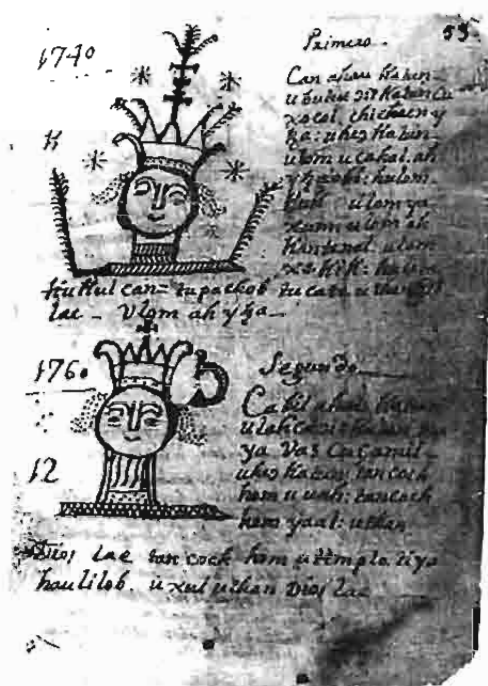 1740
Primero. 53
Can ahau Katun
u buluc ɔit Katun cu
xocol. chichen y
tza: u heɔ Katun
ulom u cahal. ah
ytzaobi: kulom
Kuk ulom ya
xum ulom ah
Kantenal. ulom
xe Kik:
Kukulcan - tu pachob tu caten u than
lae - Vlom ah ytza -
1760
Segundo
Cabil ahau Katun
u lahca ɔit Katun
ya Vas Cuçamil
u heɔ Katun; tan coch
hom u uah: tan coch
12
hom yaal: u than
Dios lae tan coch hom u templo. tiya
haulilob. u xul u than Dios lae